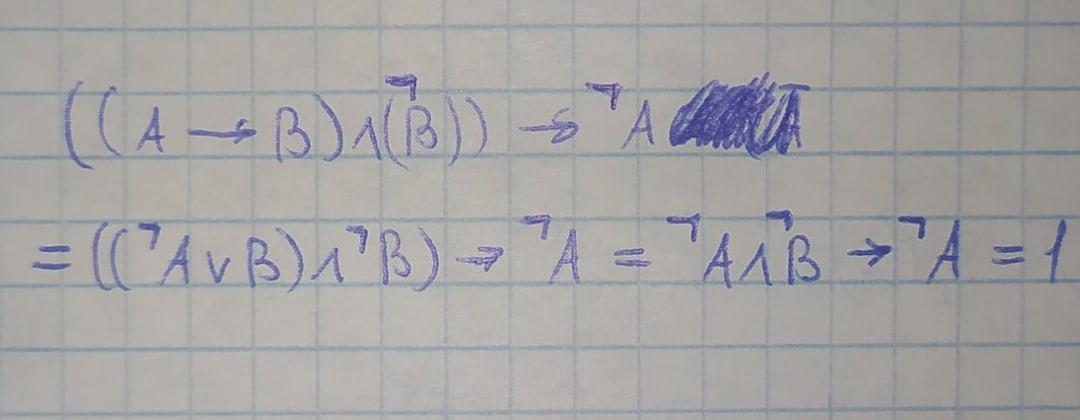 ((A → B)∧(¬B)) → ¬A
= ((¬A∨B)∧¬B) → ¬A = ¬A∧¬B → ¬A = 1